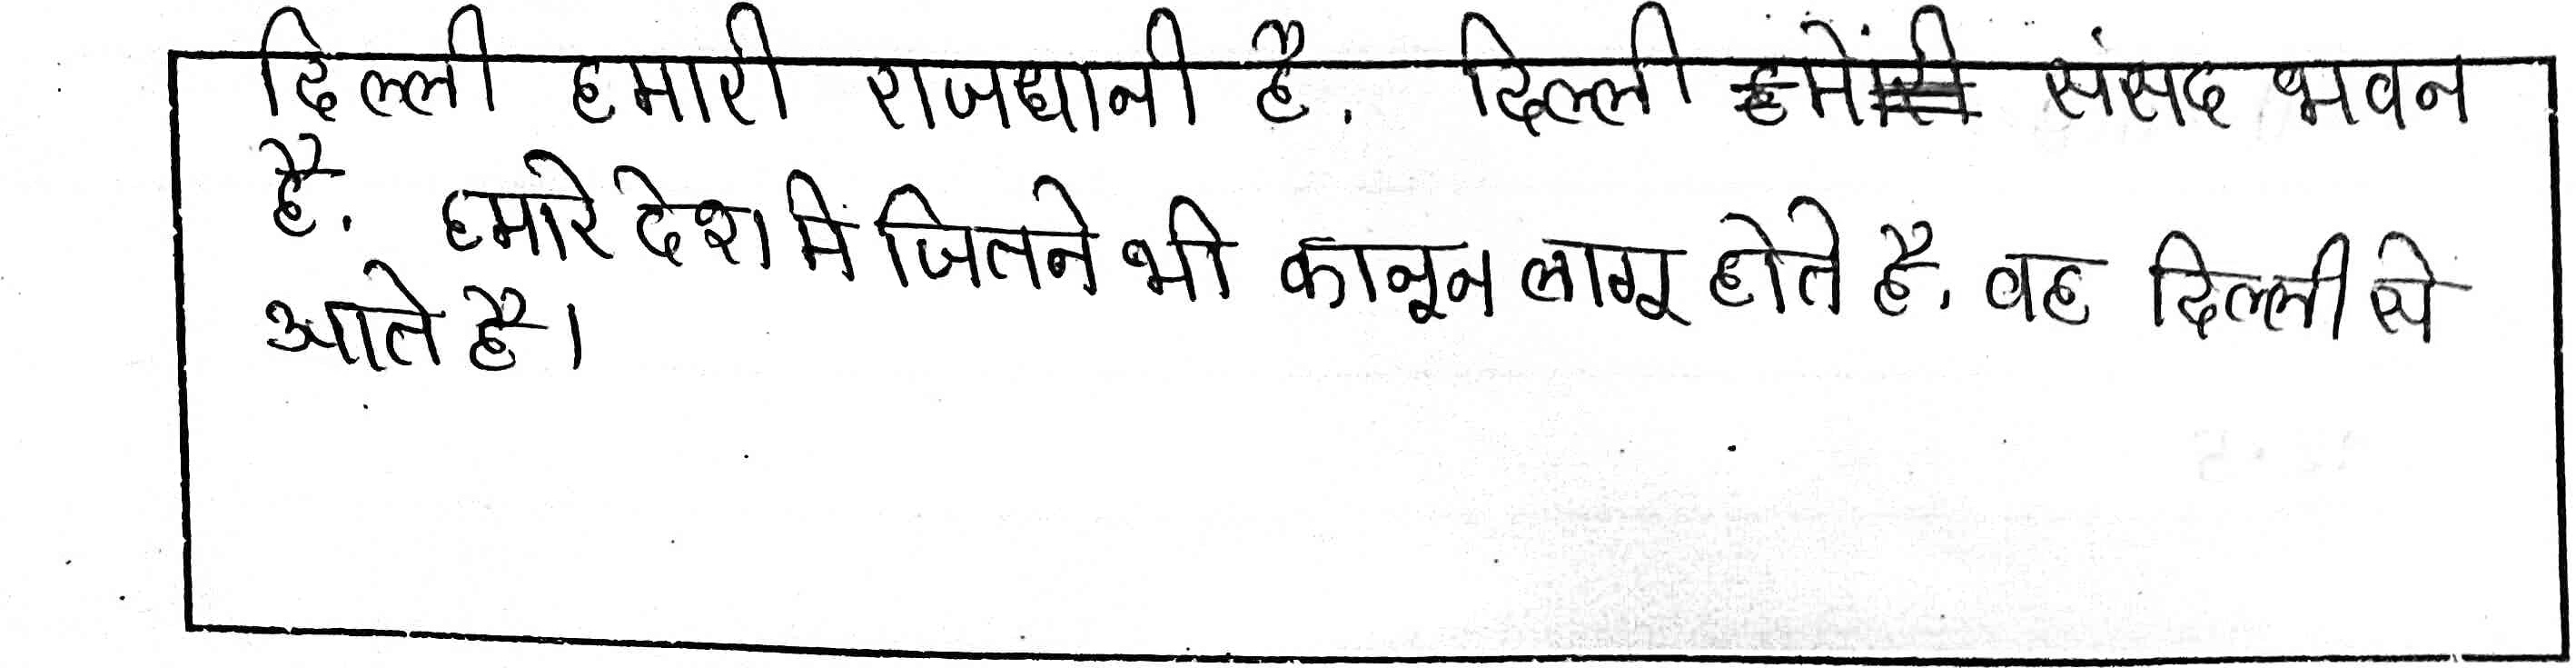 दिल्ली हमारी राजधानी है. दिल्ली में संसद भवन
है. हमारे देश में जितने भी कानून लागू होते है. वह दिल्ली से
आते है।